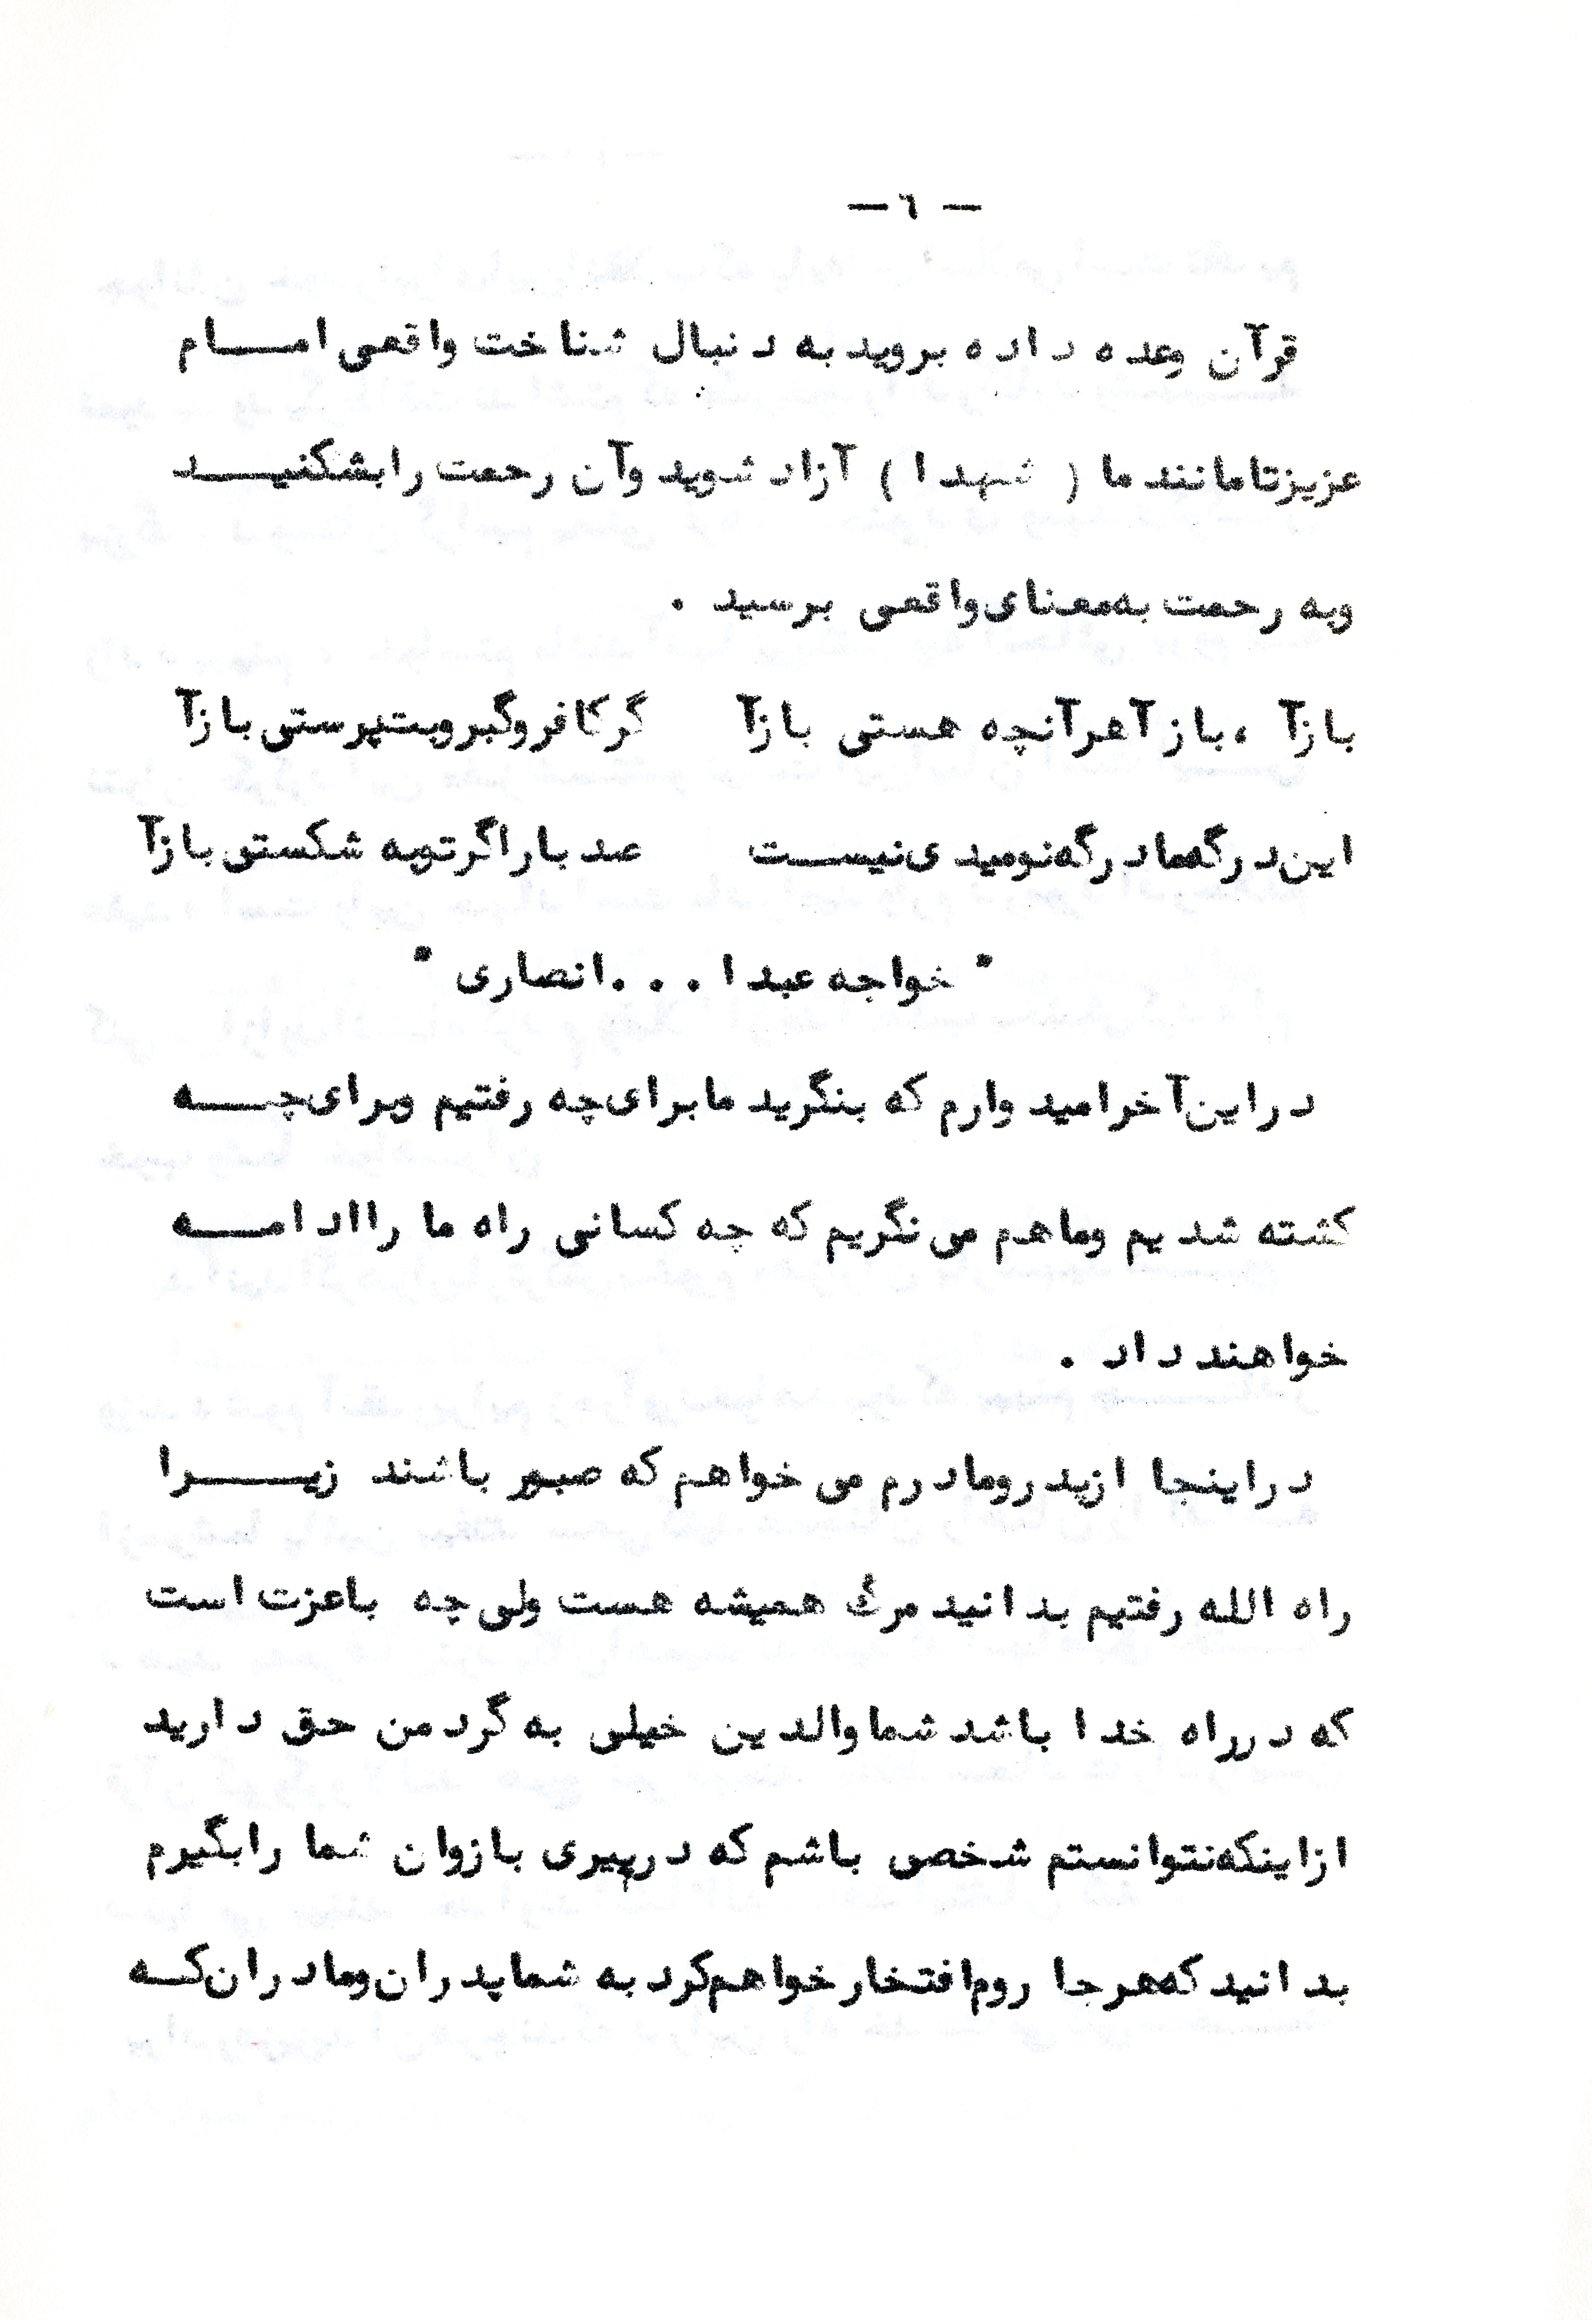 — ٦ —
قرآن وعده داده بروید به دنبال شناخت واقعی امام
عزیزتا مانند ما ( شهدا ) آزاد شوید وآن رحمت رابشکنید
وبه رحمت به معنای واقعی برسید .
بازآ ، بازآ هرآنچه هستی بازآ گر کافر وگبر وبت پرستی بازآ
این درگه ما درگه نومیدی نیست صد بار اگر توبه شکستی بازآ
" خواجه عبدا ... انصاری "
دراین آخر امید وارم که بنگرید ما برای چه رفتیم وبرای چه
کشته شدیم وماهم می نگریم که چه کسانی راه ما راادامه
خواهند داد .
دراینجا ازپدرومادرم می خواهم که صبور باشند زیرا
راه الله رفتیم بدانید مرگ همیشه هست ولی چه باعزت است
که درراه خدا باشد شما والدین خیلی به گردمن حق دارید
ازاینکه نتوانستم شخصی باشم که درپیری بازوان شما رابگیرم
بدانید که هرجا روم افتخار خواهم کرد به شما پدران ومادران که